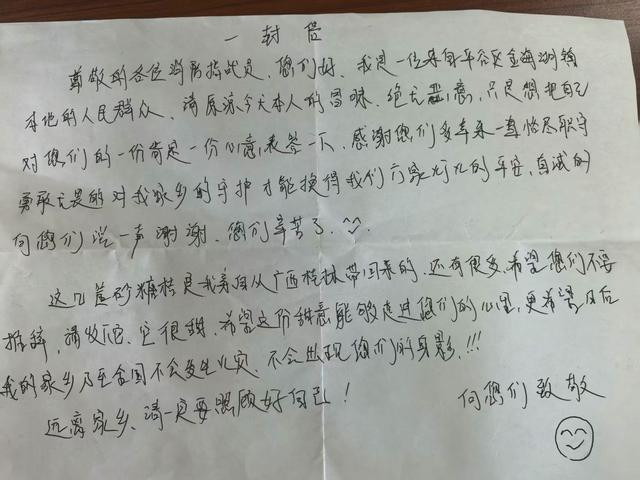 一封信
尊敬的各位消防指战员，您们好，我是一位来自平谷区金海湖镇
本地的人民群众，请原谅今天本人的冒昧，绝无恶意，只是想把自己
对您们的一份肯定一份心意表答一下，感谢您们多年来一直恪尽职守
勇敢无畏的对我家乡的守护才能换得我们万家灯火的平安，真诚的
向您们说一声谢谢，您们辛苦了.^^.
这几箱砂糖桔是我亲自从广西桂林带回来的，还有很多，希望您们不要
推辞，请收下它，它很甜，希望这份甜意能够走进您们的心里，更希望日后
我的家乡乃至全国不会发生火灾，不会出现您们的身影，!!!
远离家乡、请一定要照顾好自己！
向您们致敬